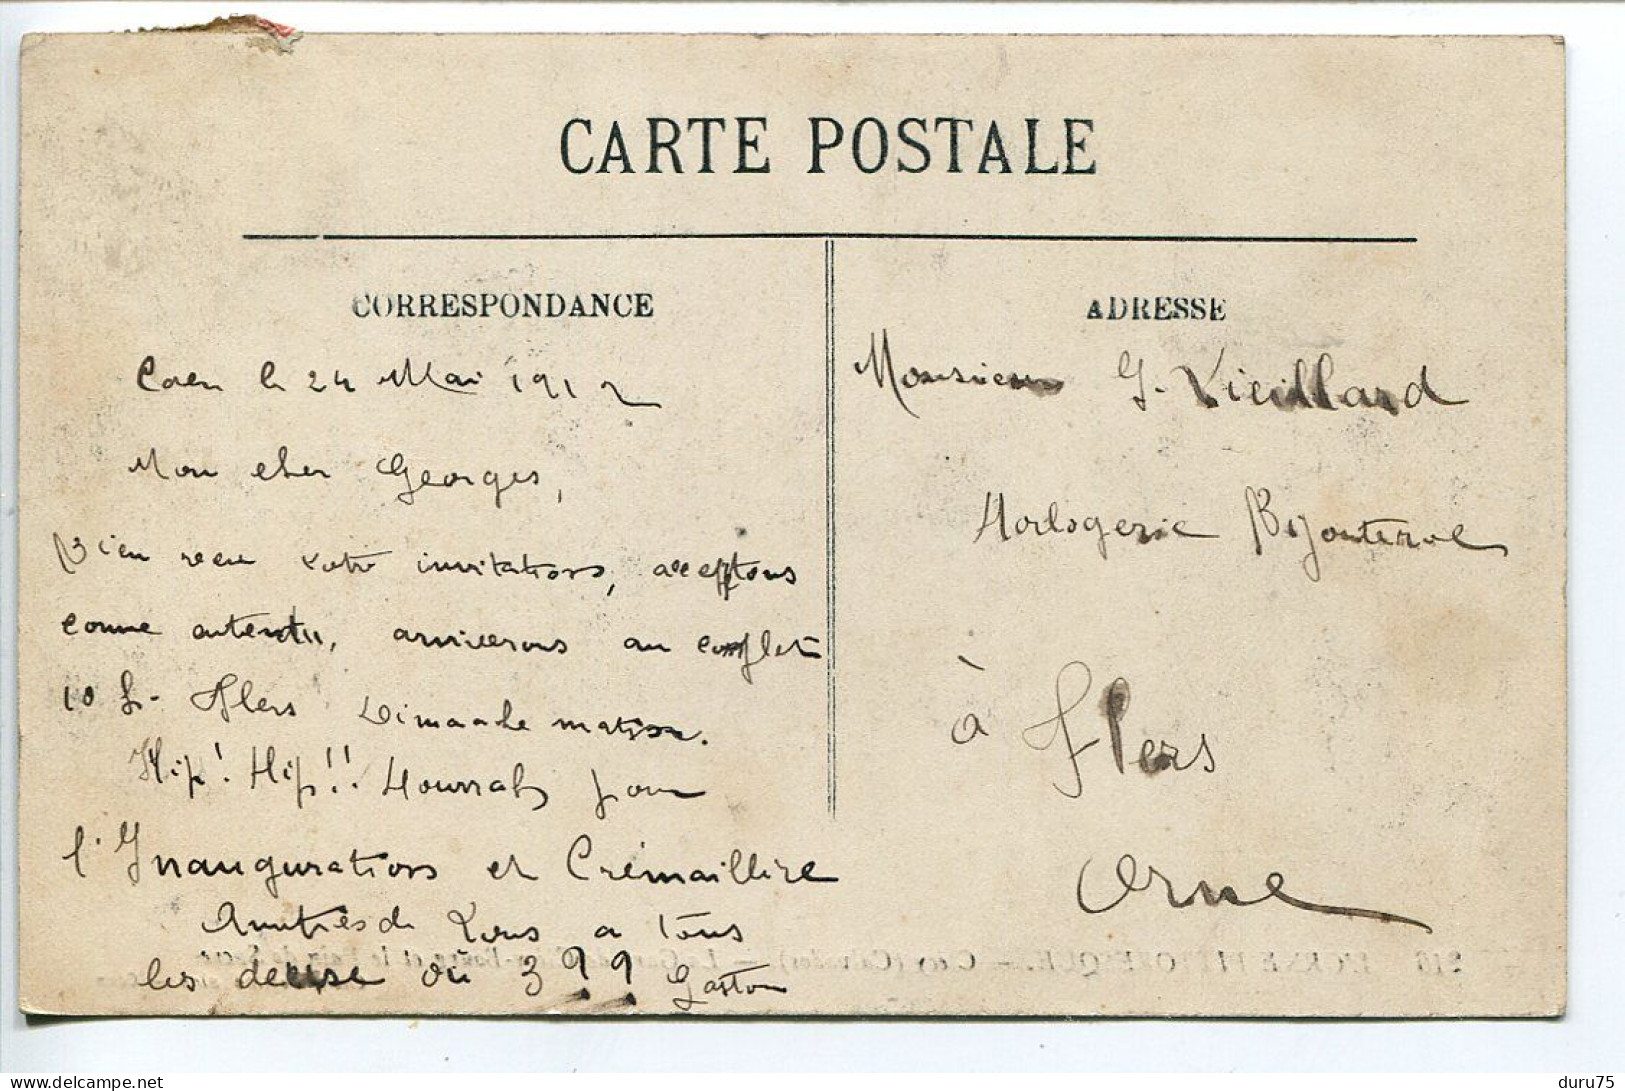 CARTE POSTALE
CORRESPONDANCE
Caen le 24 Mai 1912
Mon cher Georges,
Bien reçu votre invitations, acceptons
comme entendu, arriverons au complet
10 h. Flers Dimanche matin.
Hip! Hip!! Hourrah pour
l'Inauguration et Crémaillère
Amitiés de tous a tous
les deux ou 3 ?? Gaston
ADRESSE
Monsieur G. Vieillard
Horlogerie Bijouterie
à Flers
Orne
delcampe.net
duru75